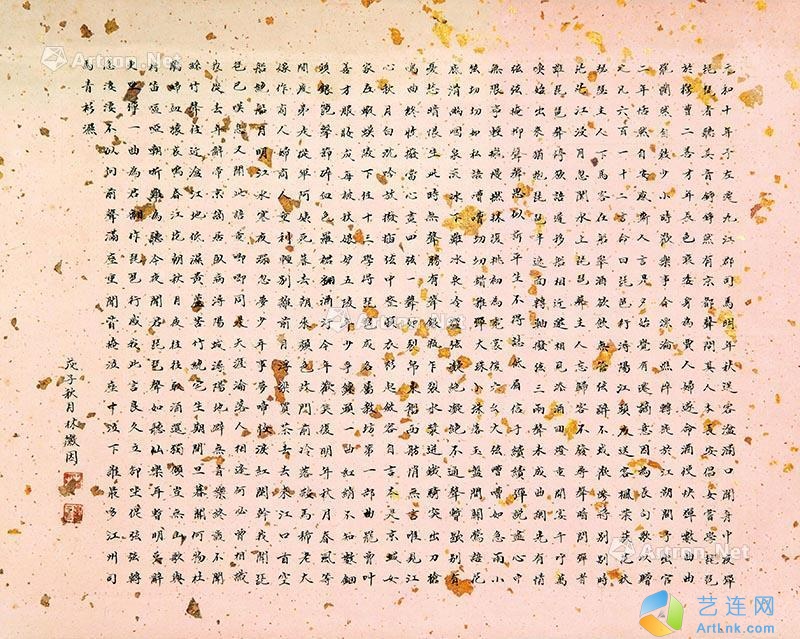 元和十年予左遷九江郡司馬明年秋送客湓浦口聞舟中夜彈
琵琶者聽其音錚錚然有京都聲問其人本長安倡女嘗學琵琶
於穆曹二善才年長色衰委身為賈人婦遂命酒使快彈數曲曲
罷憫然自敘少小時歡樂事今漂淪憔悴轉徙於江湖間予出官
二年恬然自安感斯人言是夕始覺有遷謫意因為長句歌以贈
之凡六百一十二言命曰琵琶行潯陽江頭夜送客楓葉荻花秋
瑟瑟主人下馬客在船舉酒欲飲無管絃醉不成歡慘將別別時
茫茫江浸月忽聞水上琵琶聲主人忘歸客不發尋聲暗問彈者
誰琵琶聲停欲語遲移船相近邀相見添酒回燈重開宴千呼萬
喚始出來猶抱琵琶半遮面轉軸撥弦三兩聲未成曲調先有情
弦弦掩抑聲聲思似訴平生不得志低眉信手續續彈說盡心中
無限事輕攏慢撚抹復挑初為霓裳後六么大弦嘈嘈如急雨小
弦切切如私語嘈嘈切切錯雜彈大珠小珠落玉盤間關鶯語花
底滑幽咽泉流冰下難水泉冷澀弦凝絕凝絕不通聲暫歇別有
憂愁暗恨生此時無聲勝有聲銀瓶乍裂水漿迸鐵騎突出刀槍
鳴曲終收撥當心畫四弦一聲如裂帛東船西舫悄無言唯見江
心秋月白沉吟放撥插弦中整頓衣裳起斂容自言本是京城女
家在蝦蟆陵下住十三學得琵琶成名屬教坊第一部曲罷曾教
善才服妝成每被秋娘妒五陵年少爭纏頭一曲紅綃不知數鈿
頭銀篦擊節碎血色羅裙翻酒污今年歡笑復明年秋月春風等
閒度弟走從軍阿姨死暮去朝來顏色故門前冷落鞍馬稀老大
嫁作商人婦商人重利輕別離前月浮梁買茶去去來江口守空
船繞船月明江水寒夜深忽夢少年事夢啼妝淚紅闌干我聞琵
琶已嘆息又聞此語重唧唧同是天涯淪落人相逢何必曾相識
我從去年辭帝京謫居臥病潯陽城潯陽地僻無音樂終歲不聞
絲竹聲住近湓江地低濕黃蘆苦竹繞宅生其間旦暮聞何物杜
鵑啼血猿哀鳴春江花朝秋月夜往往取酒還獨傾豈無山歌與
村笛嘔啞嘲哳難為聽今夜聞君琵琶聲如聽仙樂耳暫明莫辭
更坐彈一曲為君翻作琵琶行感我此言良久立卻坐促弦弦轉
急淒淒不似向前聲滿座重聞皆掩泣座中泣下誰最多江州司
馬青衫濕
戊子秋月林徽因
Artron.Net
艺连网
ArtLnk.com